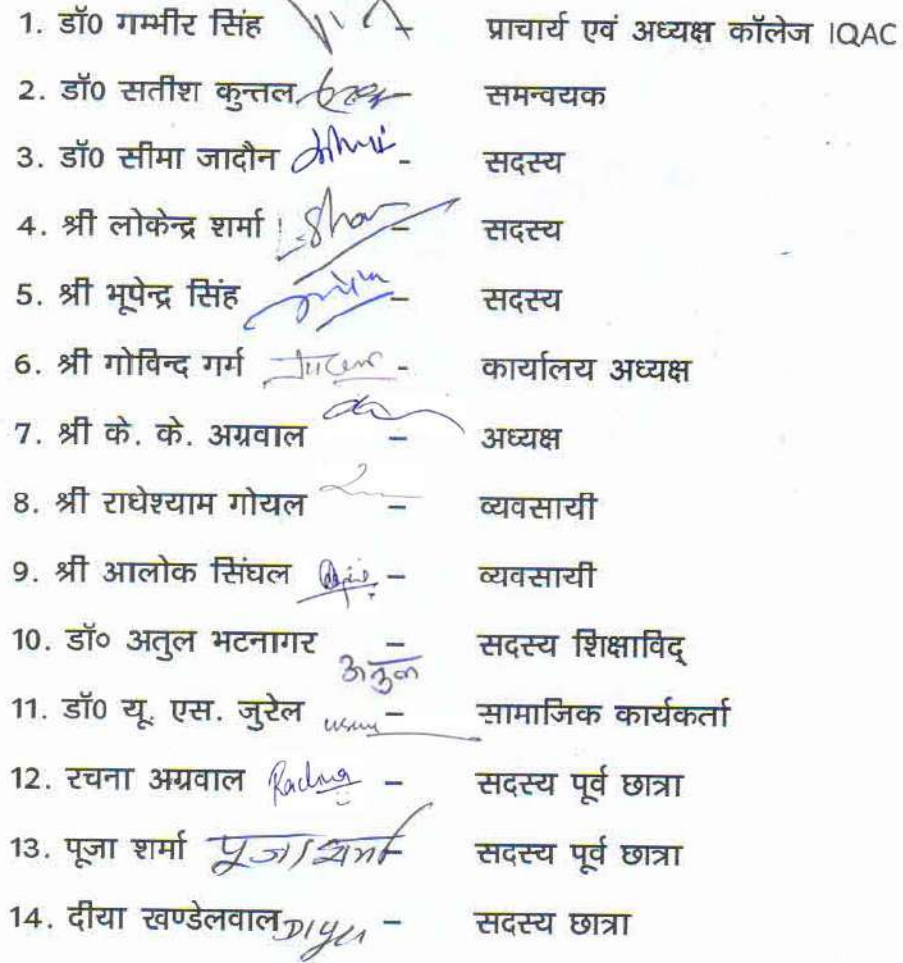 1. डॉ0 गम्भीर सिंह प्राचार्य एवं अध्यक्ष कॉलेज IQAC
2. डॉ0 सतीश कुन्तल समन्वयक
3. डॉ0 सीमा जादौन - सदस्य
4. श्री लोकेन्द्र शर्मा - सदस्य
5. श्री भूपेन्द्र सिंह - सदस्य
6. श्री गोविन्द गर्म - कार्यालय अध्यक्ष
7. श्री के. के. अग्रवाल - अध्यक्ष
8. श्री राधेश्याम गोयल - व्यवसायी
9. श्री आलोक सिंघल - व्यवसायी
10. डॉ० अतुल भटनागर अतुल - सदस्य शिक्षाविद्
11. डॉ0 यू. एस. जुरेल - सामाजिक कार्यकर्ता
12. रचना अग्रवाल - सदस्य पूर्व छात्रा
13. पूजा शर्मा पूजा शर्मा सदस्य पूर्व छात्रा
14. दीया खण्डेलवाल Diya - सदस्य छात्रा